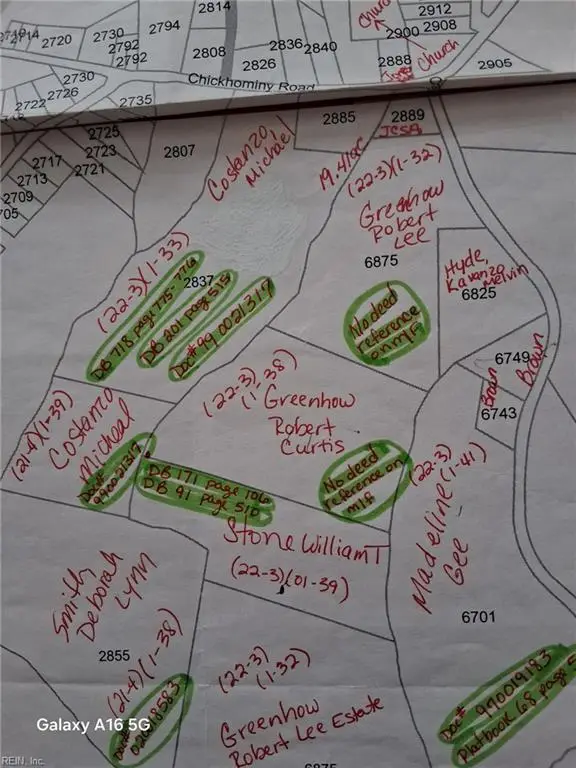 2814
2912
Church
2794
2714
2720
2730
2900
2908
2792
2808
2836
2840
2792
2826
2888
Church
2905
2730
Chickhominy Road
2726
2722
2735
2885
2889
JCSA
2725
2807
Costanzo,
Michael
19.41 ac
2717
2723
2713
2721
2709
(22-3)(1-32)
Greenhow
Robert
Lee
(22-3)(1-33)
6875
Hyde,
Kavanzo
Melvin
2837
6825
DB 718 page 775-776
DB 201 page 515
Doc# 990021317
No deed
reference
on mlf
6749
Brown
Brown
6743
(22-3)
(1-38)
Greenhow
Robert
Curtis
(21-4)(1-39)
Costanzo
Micheal
Doc#
990021317
DB 171 page 106
DB 91 page 510
No deed
reference on
mlf
(22-3)
(1-41)
Madeline
Gee
Stone William T
(22-3)(01-39)
Smith,
Deborah
Lynn
6701
2855
(21-4)(1-38)
(22-3)
(1-32)
Greenhow
Robert Lee Estate
Doc# 990019183
Platbook 68 page 5
Galaxy A16 5G
REIN, Inc.
6875